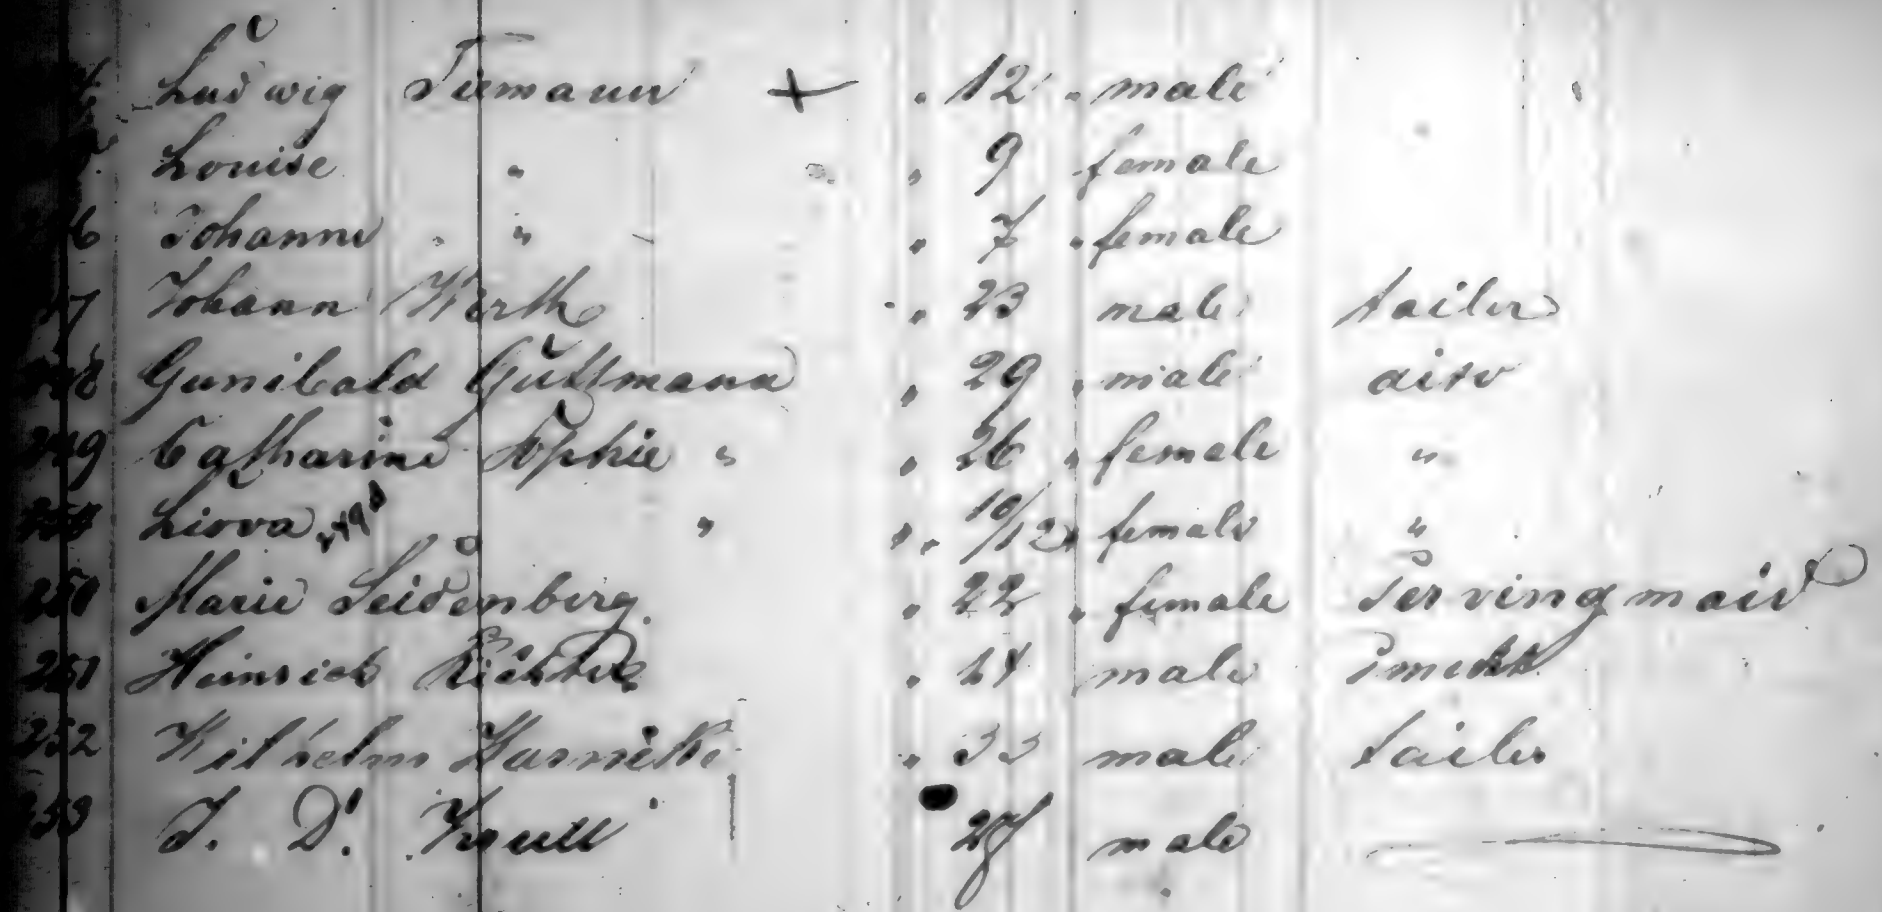 Ludwig Tiemann + " 12 " male
Louise " " 9 female
6 Johanne " " " 7 " female
7 Johann Werth " 23 male tailer
248 Gunibald Guttmann " 29 " male dito
249 Catharine Sophie " " 26 " female "
Liova " " 10/12 " female "
250 Marie Seidenberg " 22 " female Servingmaid
251 Heinrich Richter " 24 male
252 Wilhelm " 33 male tailer
253 J. D. 27 male